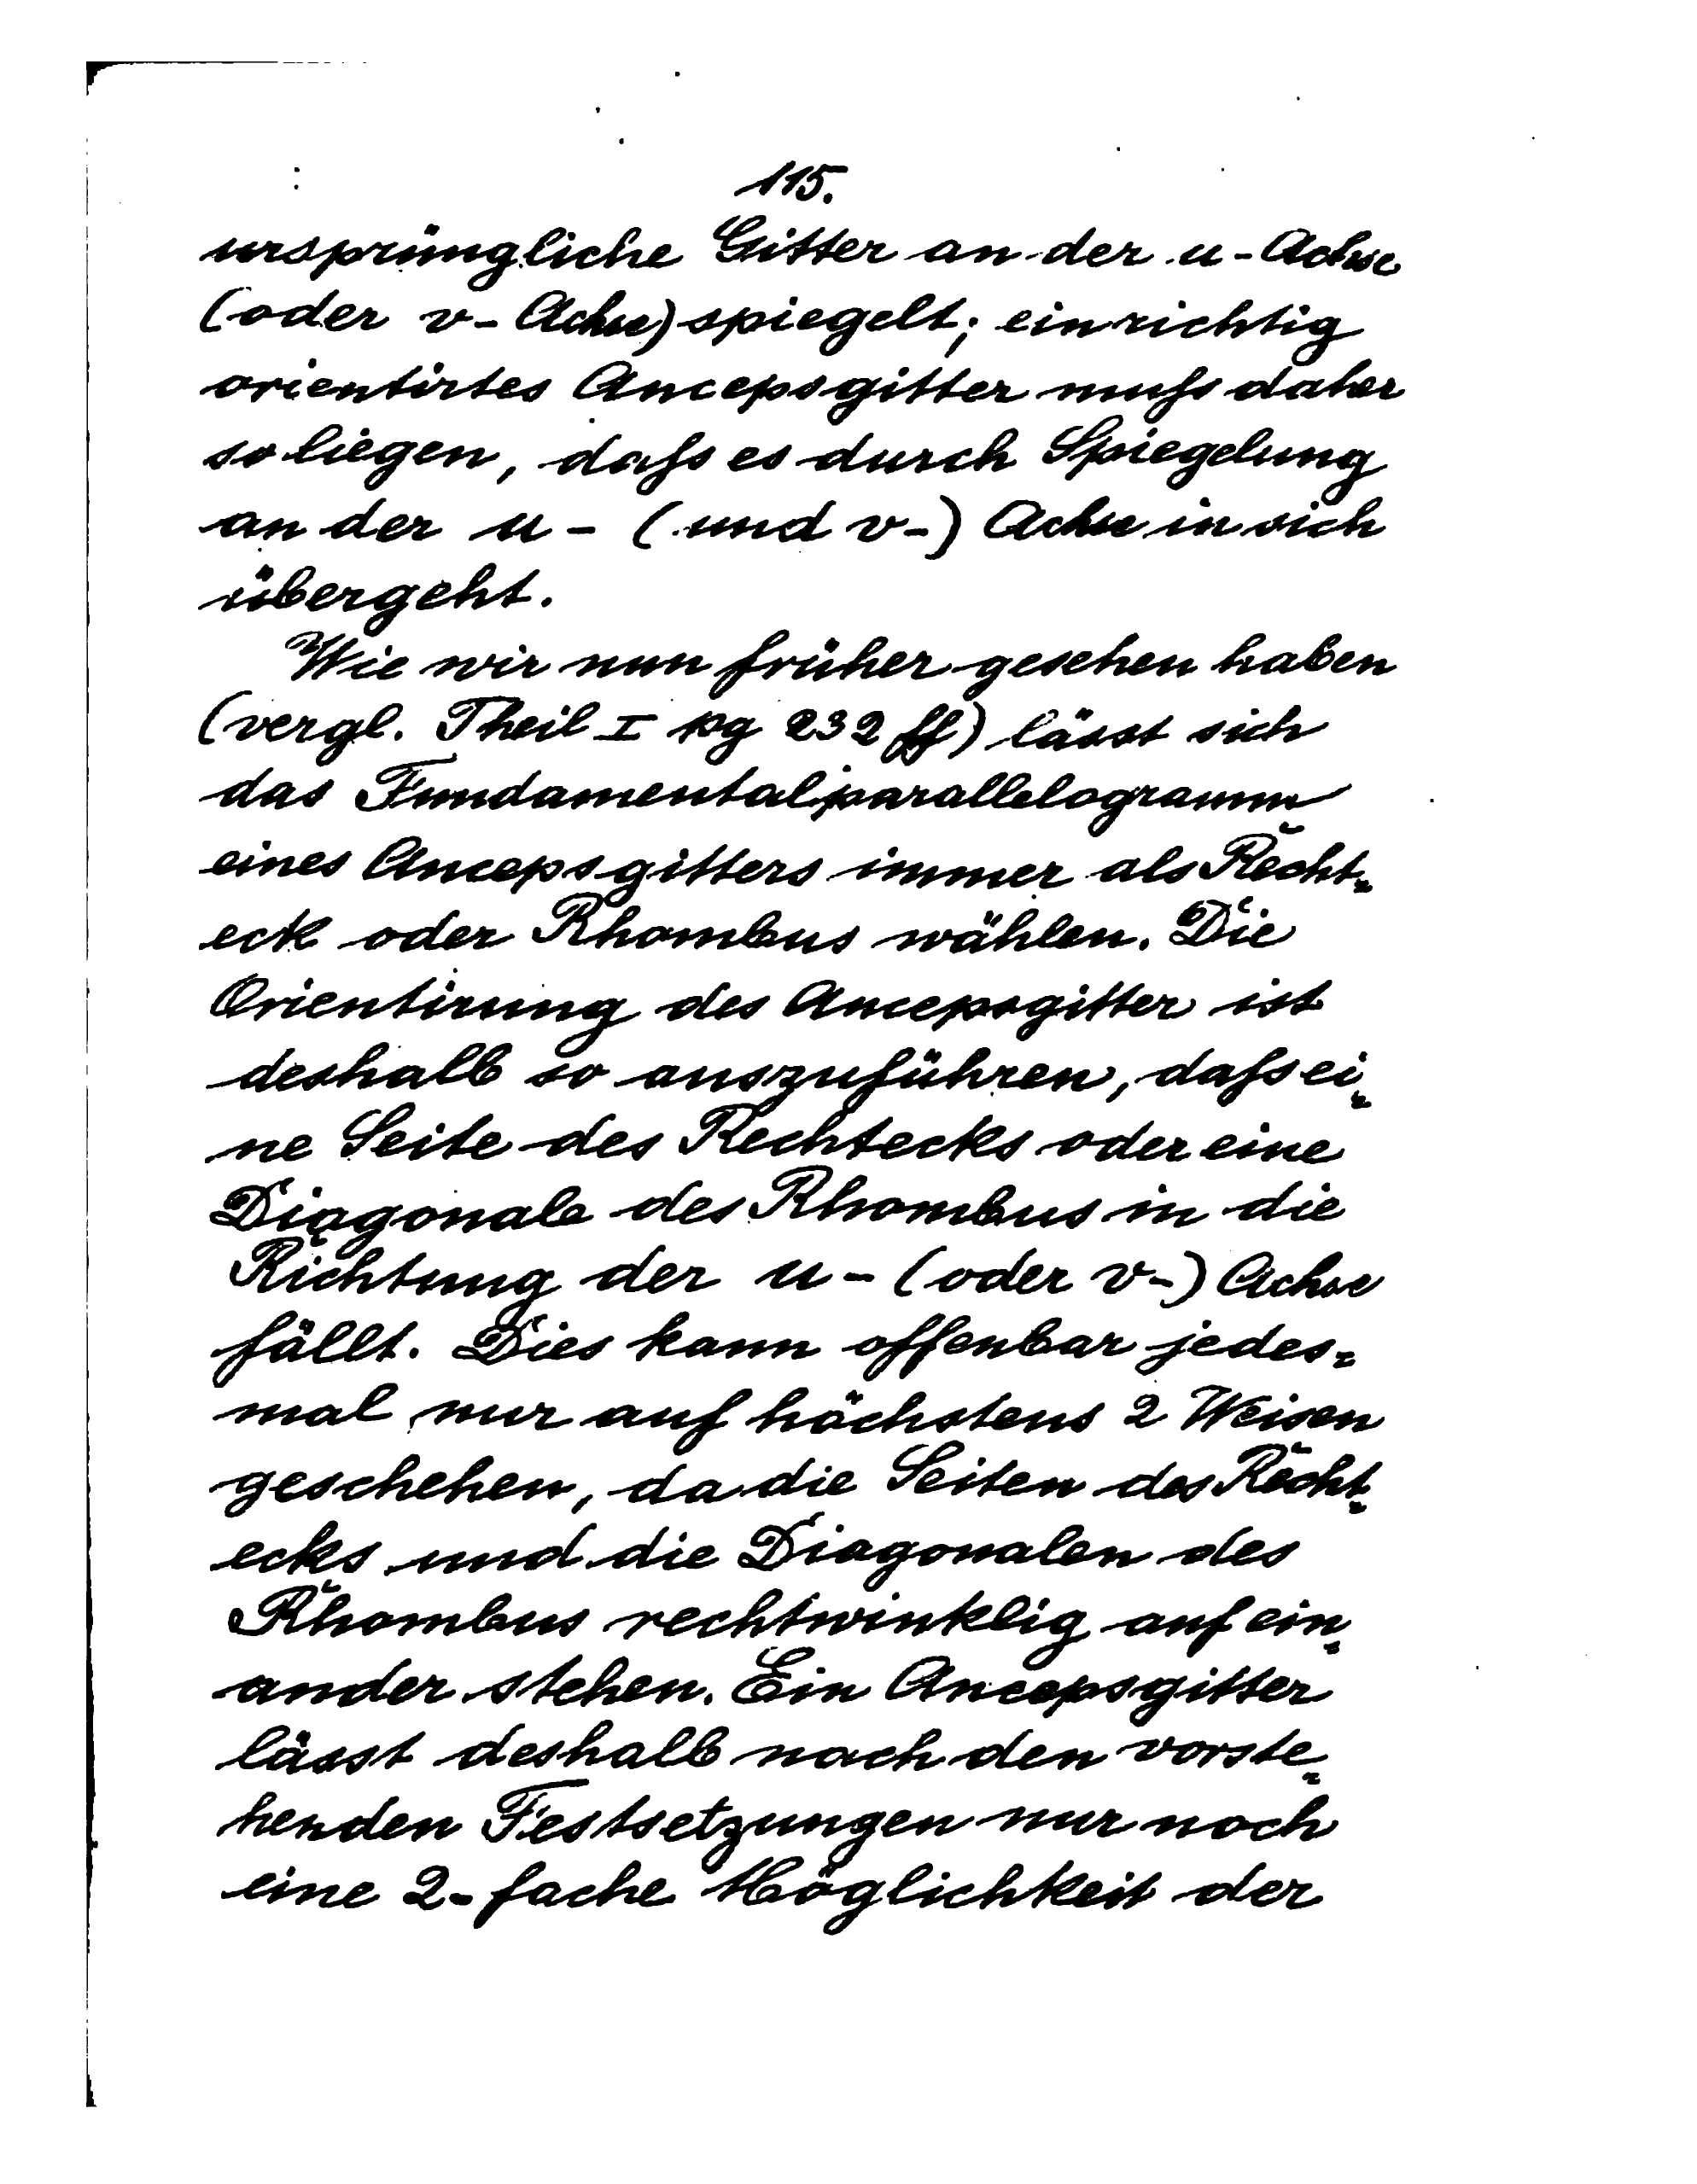 115.
ursprüngliche Gitter an der u-Achse
(oder v-Achse) spiegelt; ein richtig
orientirtes Ancepsgitter muſs daher
so liegen, daſs es durch Spiegelung
an der u- (und v-) Achse in sich
übergeht.
Wie wir nun früher gesehen haben
(vergl. Theil I pg 232 ff) lässt sich
das Fundamentalparallelogramm
eines Ancepsgitters immer als Recht-
eck oder Rhombus wählen. Die
Orientirung des Ancepsgitter ist
deshalb so auszuführen, daſs ei-
ne Seite des Rechtecks oder eine
Diagonale des Rhombus in die
Richtung der u- (oder v-) Achse
fällt. Dies kann offenbar jedes-
mal nur auf höchstens 2 Weisen
geschehen, da die Seiten des Recht-
ecks und die Diagonalen des
Rhombus rechtwinklig auf ein-
ander stehen. Ein Ancepsgitter
lässt deshalb nach den vorste-
henden Festsetzungen nur noch
eine 2-fache Möglichkeit der